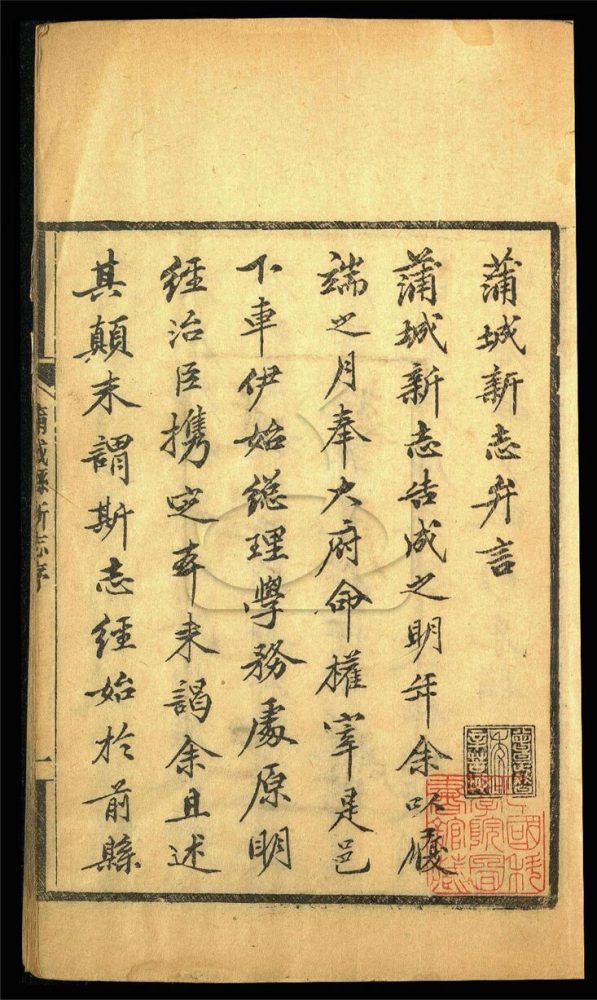 蒲城新志弁言
蒲城新志告成之明年余以履
端之月奉大府命權宰是邑
下車伊始總理學務處原明
經治臣攜定本来謁余且述
其顛末謂斯志經始於前縣
蒲城縣新志序
一
中國科
學院圖
書館藏